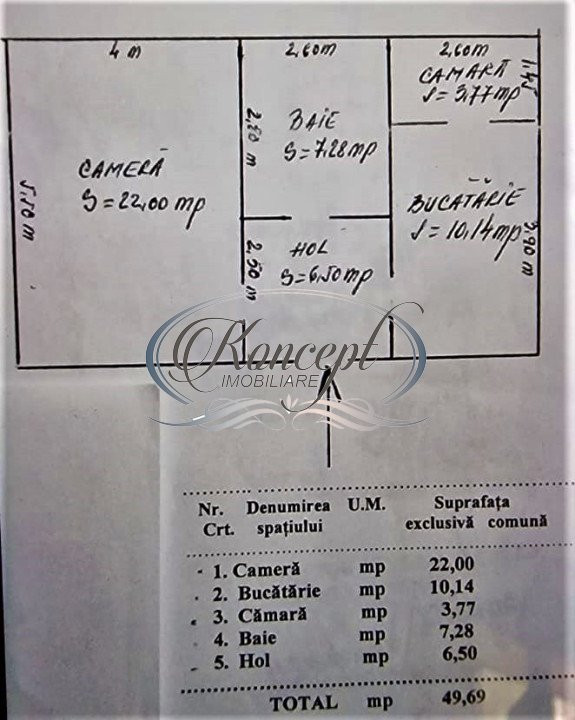 4 m
2,60m
2,60m
1.45
CAMARĂ
S = 3,77mp
2,80 m
BAIE
S = 7,28mp
CAMERĂ
S = 22,00 mp
5,50 m
BUCATĂRIE
S = 10,14mp
3,90 m
HOL
S = 6,50mp
2,50 m
Koncept
IMOBILIARE
Nr. Denumirea U.M. Suprafața
Crt. spațiului exclusivă comună
1. Cameră mp 22,00
2. Bucătărie mp 10,14
3. Cămară mp 3,77
4. Baie mp 7,28
5. Hol mp 6,50
TOTAL mp 49,69